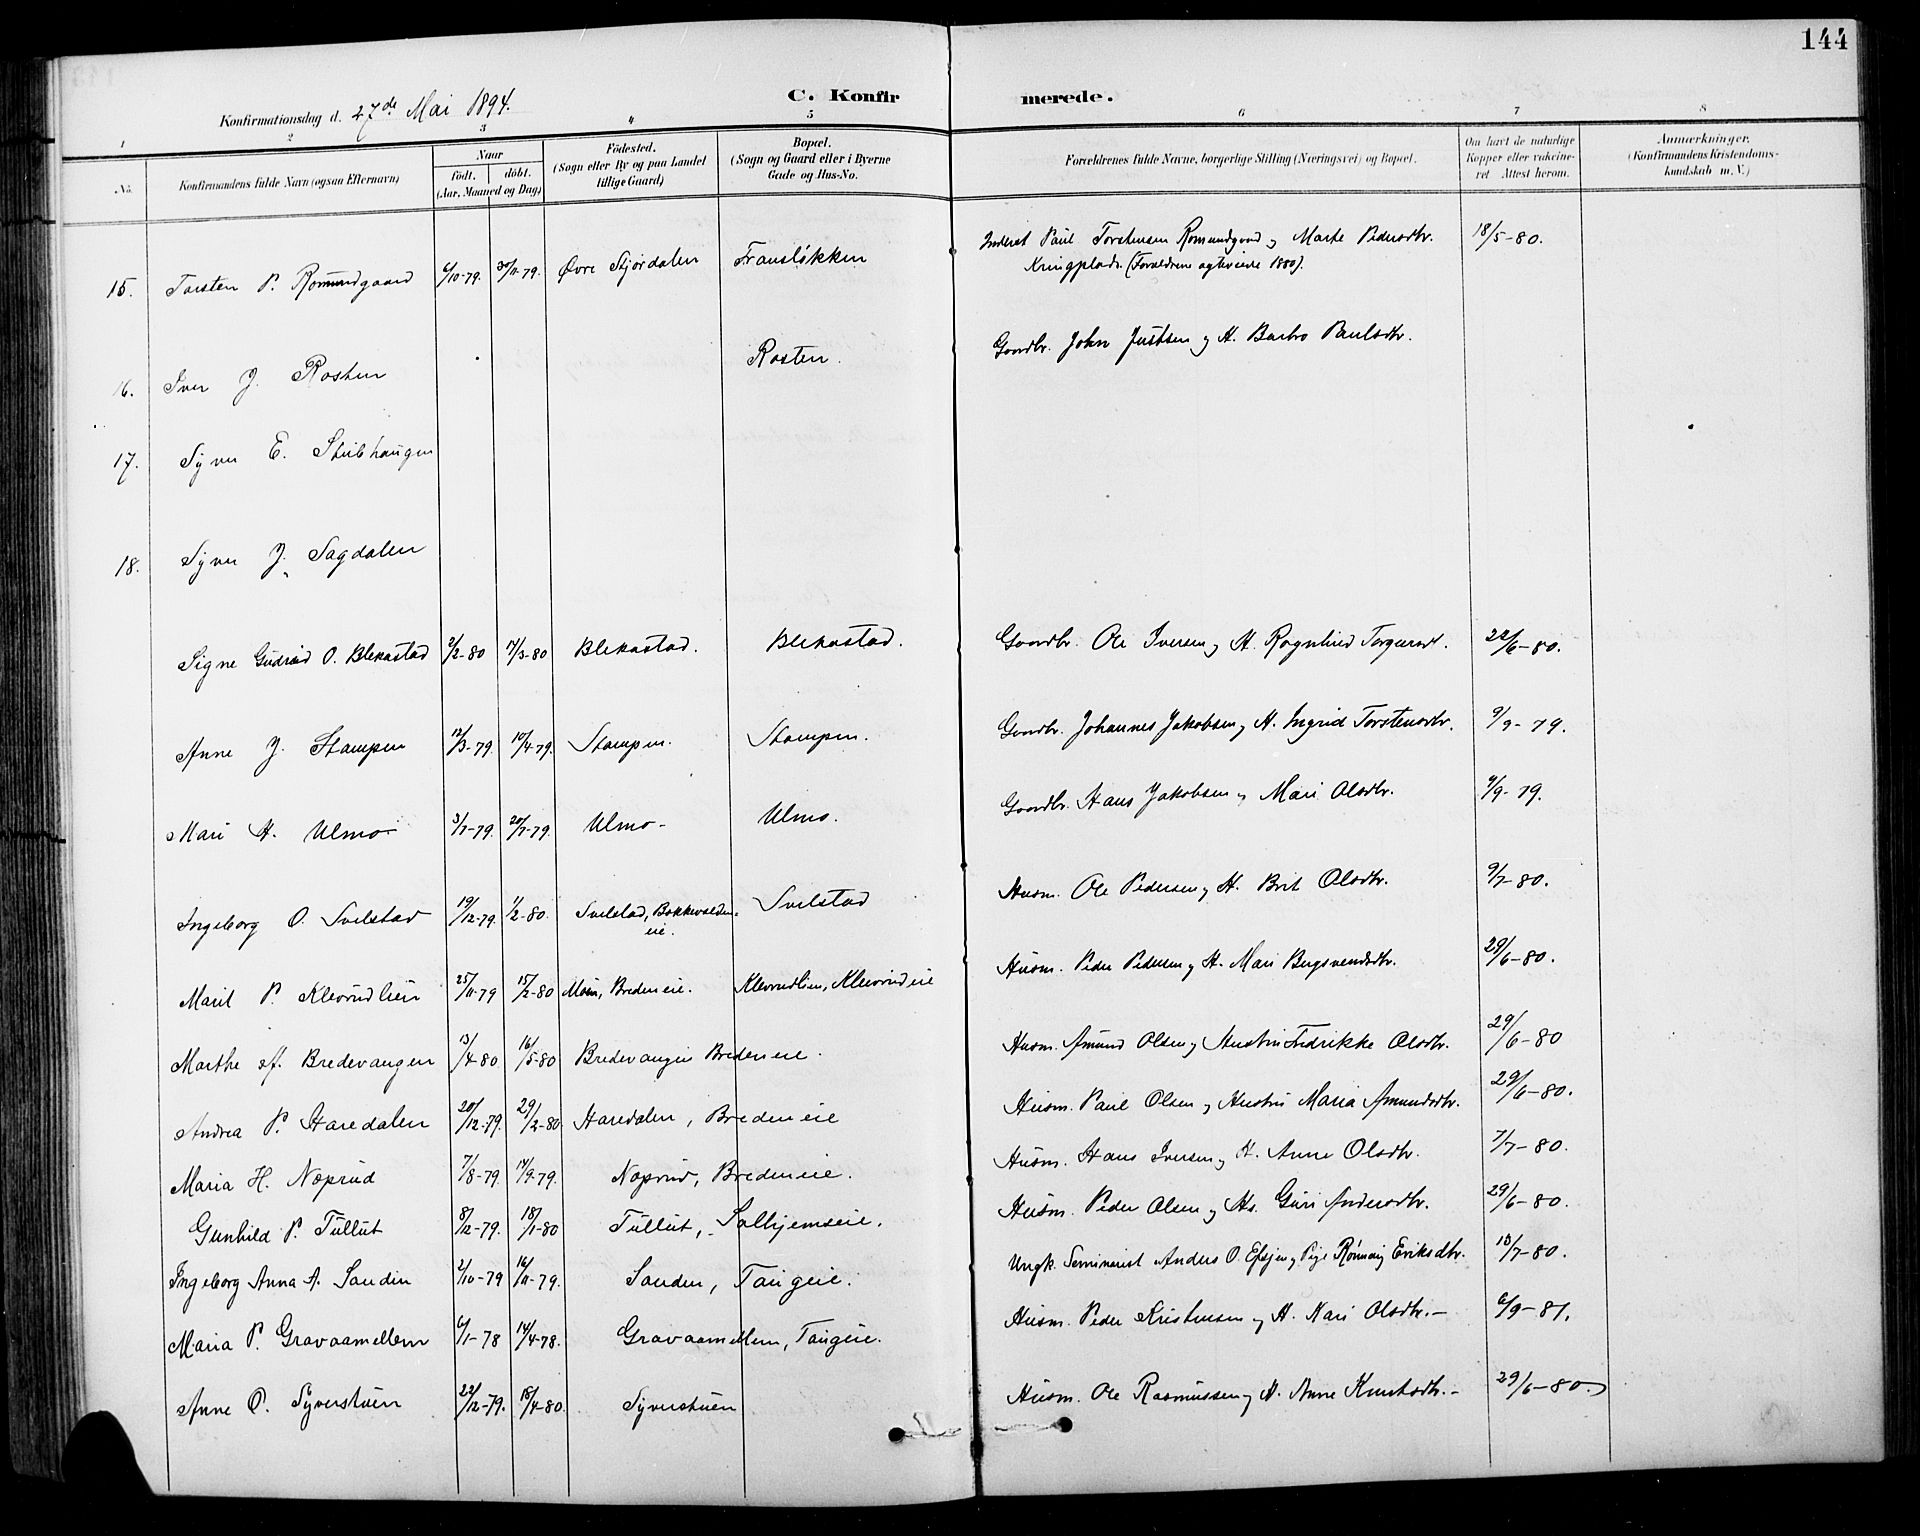 144
C. Konfirmerede.
Konfirmationsdag d. 27de Mai 1894.
1 2 3 4 5 6 7 8
No.
Konfirmandens fulde Navn (ogsaa Efternavn)
Naar
födt. döbt.
(Aar, Maaned og Dag)
Födested.
(Sogn eller By og paa Landet
tillige Gaard)
Bopæl.
(Sogn og Gaard eller i Byerne
Gade og Hus-No.
Forældrenes fulde Navne, borgerlige Stilling (Næringsvei) og Bopæl.
Om havt de naturlige
Kopper eller vakcine-
ret Attest herom.
Anmærkninger.
(Konfirmandens Kristendoms-
kundskab m. V.)
15. Torsten P. Romundgaard 6/10-79. 30/11-79. Øvre Stjørdalen Fransløkken Inderst Paul Torstensen Romundgaard og Marte Pedersdtr. 18/5-80.
Kringplads. (Forældrene ægteviede 1880).
16. Iver J. Rosten Rosten. Gaardbr. John Justsen og H. Barbro Paulsdtr.
17. Syver E. Stubhaugen
18. Syver J. Sagdalen
Signe Gudrid O. Blekastad 2/2-80 14/3-80 Blekastad. Blekastad. Gaardbr. Ole Iversen og H. Ragnhild Torgersdt. 22/6-80.
Anne J. Stampen 12/3-79. 10/4-79. Stampen. Stampen. Gaardbr. Johannes Jakobsen og H. Ingrid Torstensdtr. 9/9-79.
Mari H. Ulmo 3/7-79. 20/7-79. Ulmo- Ulmo. Gaardbr. Hans Jakobsen og Mari Olsdtr. 9/9-79.
Ingeborg O. Svelstad 19/12-79. 1/2-80. Svelstad, Bakkevolden- Svelstad Husm. Ole Pedersen og H. Brit Olsdtr. 9/7-80.
eie.
Marit P. Klevrudlien 25/11-79 15/2-80 Moen, Breden eie. Klevrudlien, Klevrud eie Husm. Peder Pedersen og H. Mari Bergsvendsdtr. 29/6-80.
Marthe A. Bredevangen 13/4-80 16/5-80 Bredevangen Breden eie. Husm. Amund Olsen og Hustru Fredrikke Olsdtr. 29/6-80
Andrea P. Haredalen 20/12-79. 29/2-80 Haredalen, Breden eie Husm. Paul Olsen og Hustru Maria Amundsdtr. 29/6-80.
Maria H. Næprud 7/8-79. 14/9-79. Næprud, Breden eie. Husm. Hans Iversen og H. Anne Olsdtr. 7/7-80.
Gunhild P. Tullut 8/12-79. 18/1-80 Tullut, Solhjemseie. Husm. Peder Olsen og Hs. Guri Andersdtr. 29/6-80.
Ingeborg Anna A. Sanden 2/10-79 16/11-79. Sanden, Tangeie. Ungk. Seminarist Anders O. og Pige Rønnaug Eriksdtr. 13/7-80.
Maria P. Gravaamellem 6/1-78 14/4-78. Gravaamellem, Tangeie. Husm. Peder Kristensen og H. Kari Olsdtr.- 6/9-81.
Anne O. Syverstuen 22/12-79. 18/4-80. Syverstuen Husm. Ole Rasmussen og H. Anne Knutsdtr.- 29/6-80.